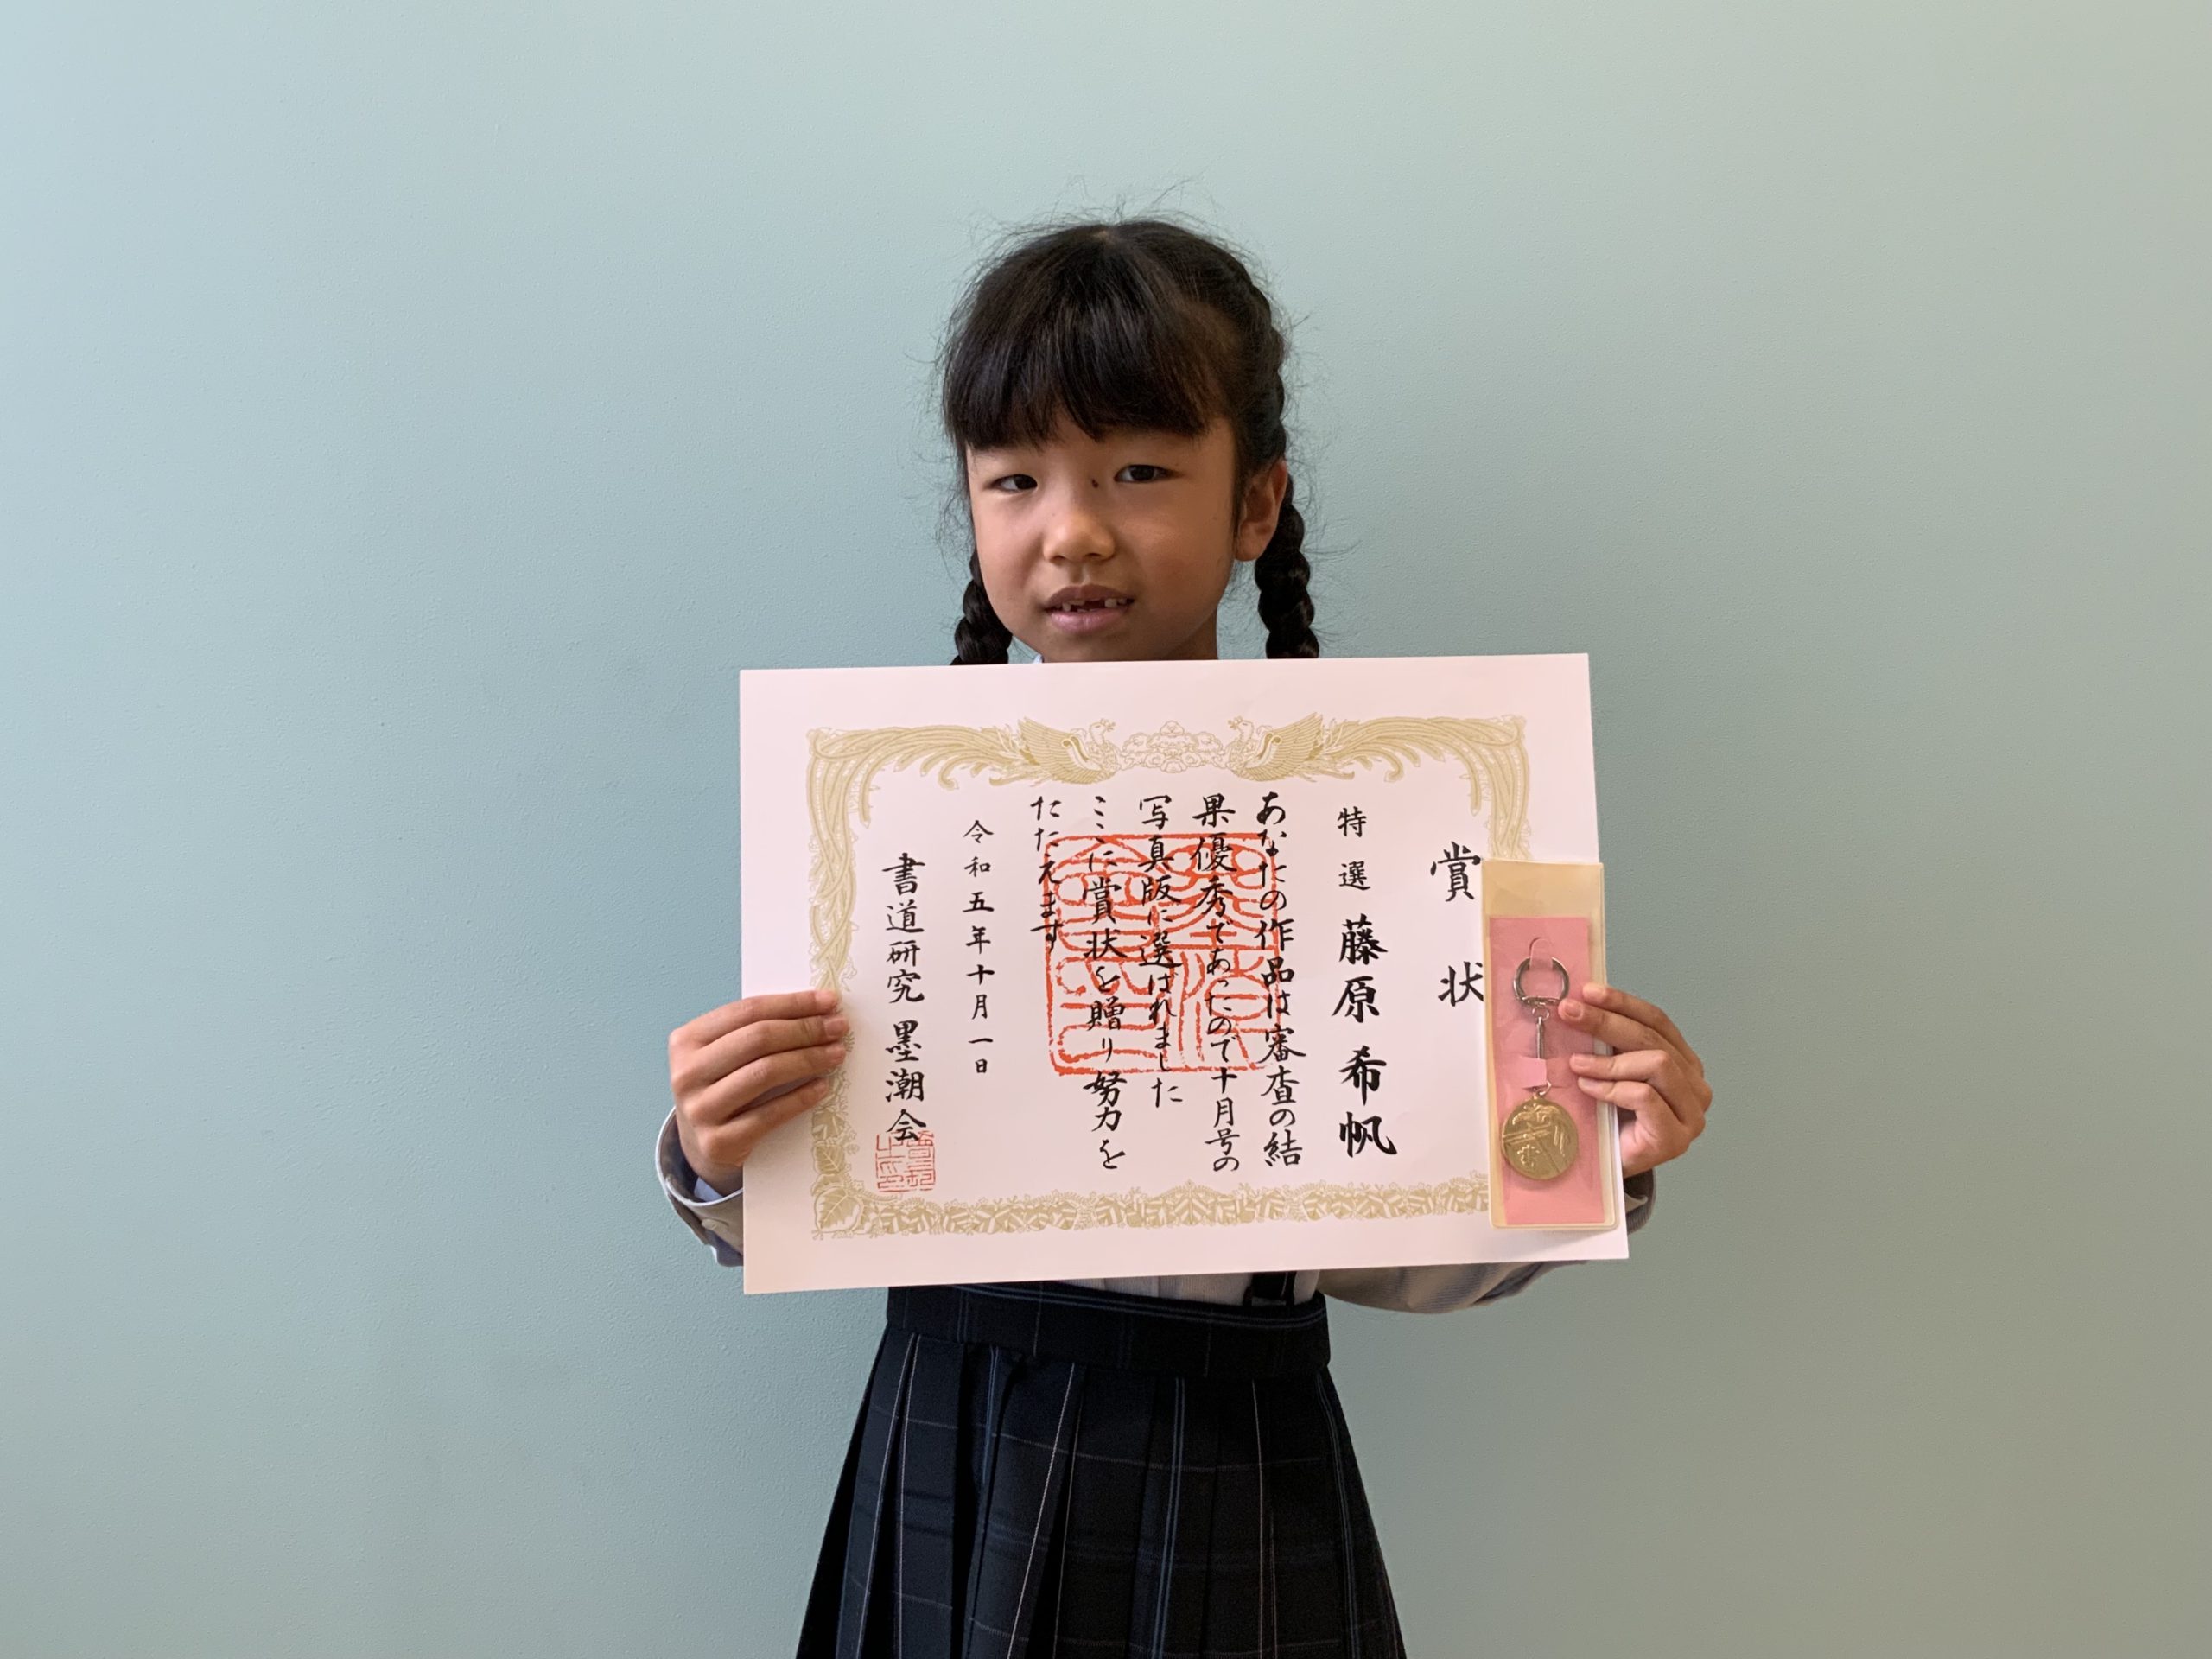 賞状
特選 藤原希帆
あなたの作品は審査の結
果優秀であったので十月号の
写真版に選ばれました
ここに賞状を贈り努力を
たたえます
令和五年十月一日
書道研究 墨潮会